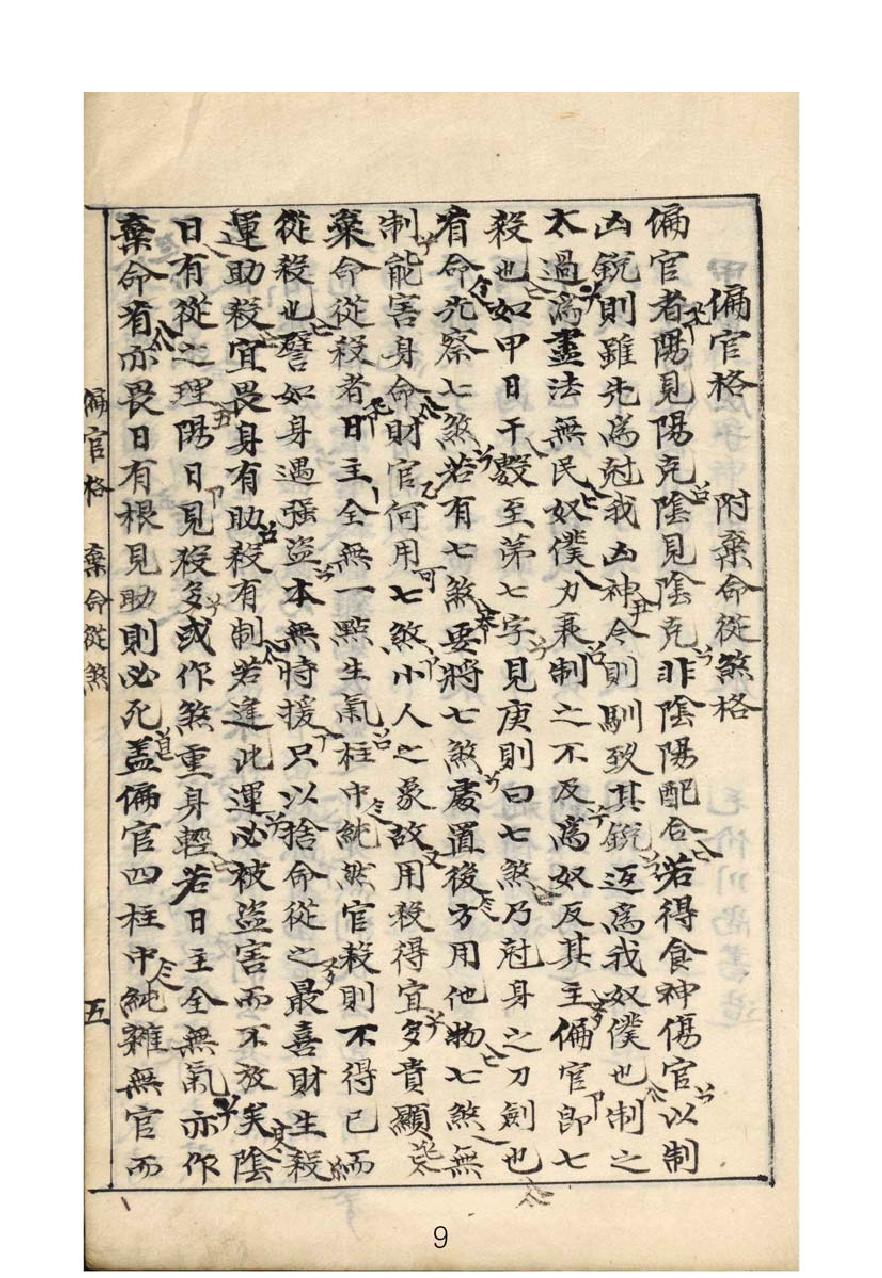 偏官格 附棄命從煞格
偏官者陽見陽克陰見陰克非陰陽配合若得食神傷官以制
凶銳則雖先爲尅我凶神令則馴致其銳迈爲我奴僕也制之
太過爲盡法無民奴僕力衰制之不及爲奴反其主偏官卽七
殺也如甲日干數至第七字見庚則曰七煞乃尅身之刀劍也
看命先察七煞若有七煞要將七煞處置後方用他物七煞無
制能害身命財官何用七煞小人之象故用殺得宜多貴顯
棄命從殺者日主全無一點生氣柱中純然官殺則不得已而
從殺也譬如身遇强盜本無時援只以捨命從之最喜財生殺
運助殺宜畏身有助殺有制若逢此運必被盜害而不放矣陰
日有從之理陽日見殺多或作煞重身輕若日主全無氣亦作
棄命看亦畏日有根見助則必死盖偏官四柱中純雜無官而
偏官格 棄命從煞 五
9